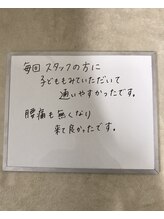 毎回 スタッフの方に
子どももみていただいて
通いやすかったです。
腰痛も無くなり
来て良かったです。